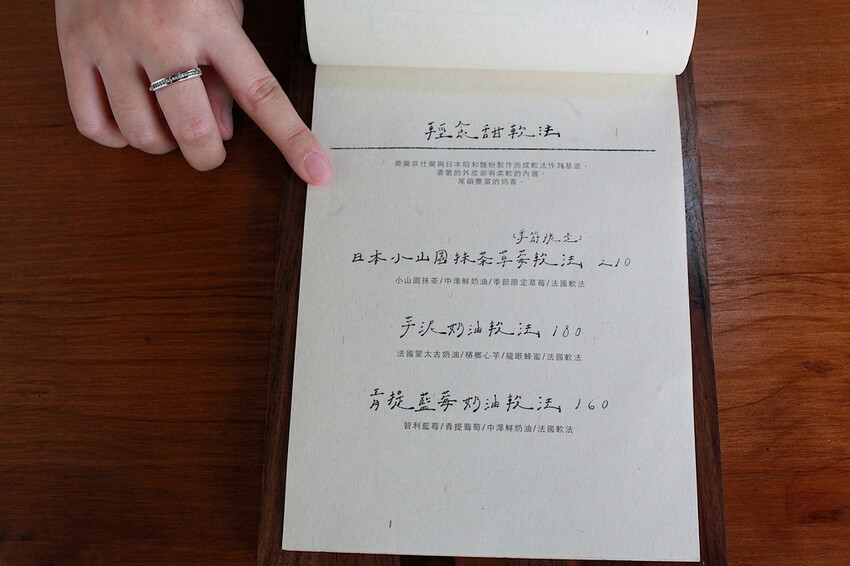 輕食甜軟法
荷蘭菲仕蘭與日本昭和麵粉製作而成軟法作為基底。
香脆的外皮卻有柔軟的內層。
尾韻豐富的奶香。
(季節限定)
日本小山園抹茶草莓軟法 210
小山園抹茶/中澤鮮奶油/季節限定草莓/法國軟法
芋泥奶油軟法 180
法國蒙太古奶油/檳榔心芋/龍眼蜂蜜/法國軟法
青提藍莓奶油軟法 160
智利藍莓/青提葡萄/中澤鮮奶油/法國軟法